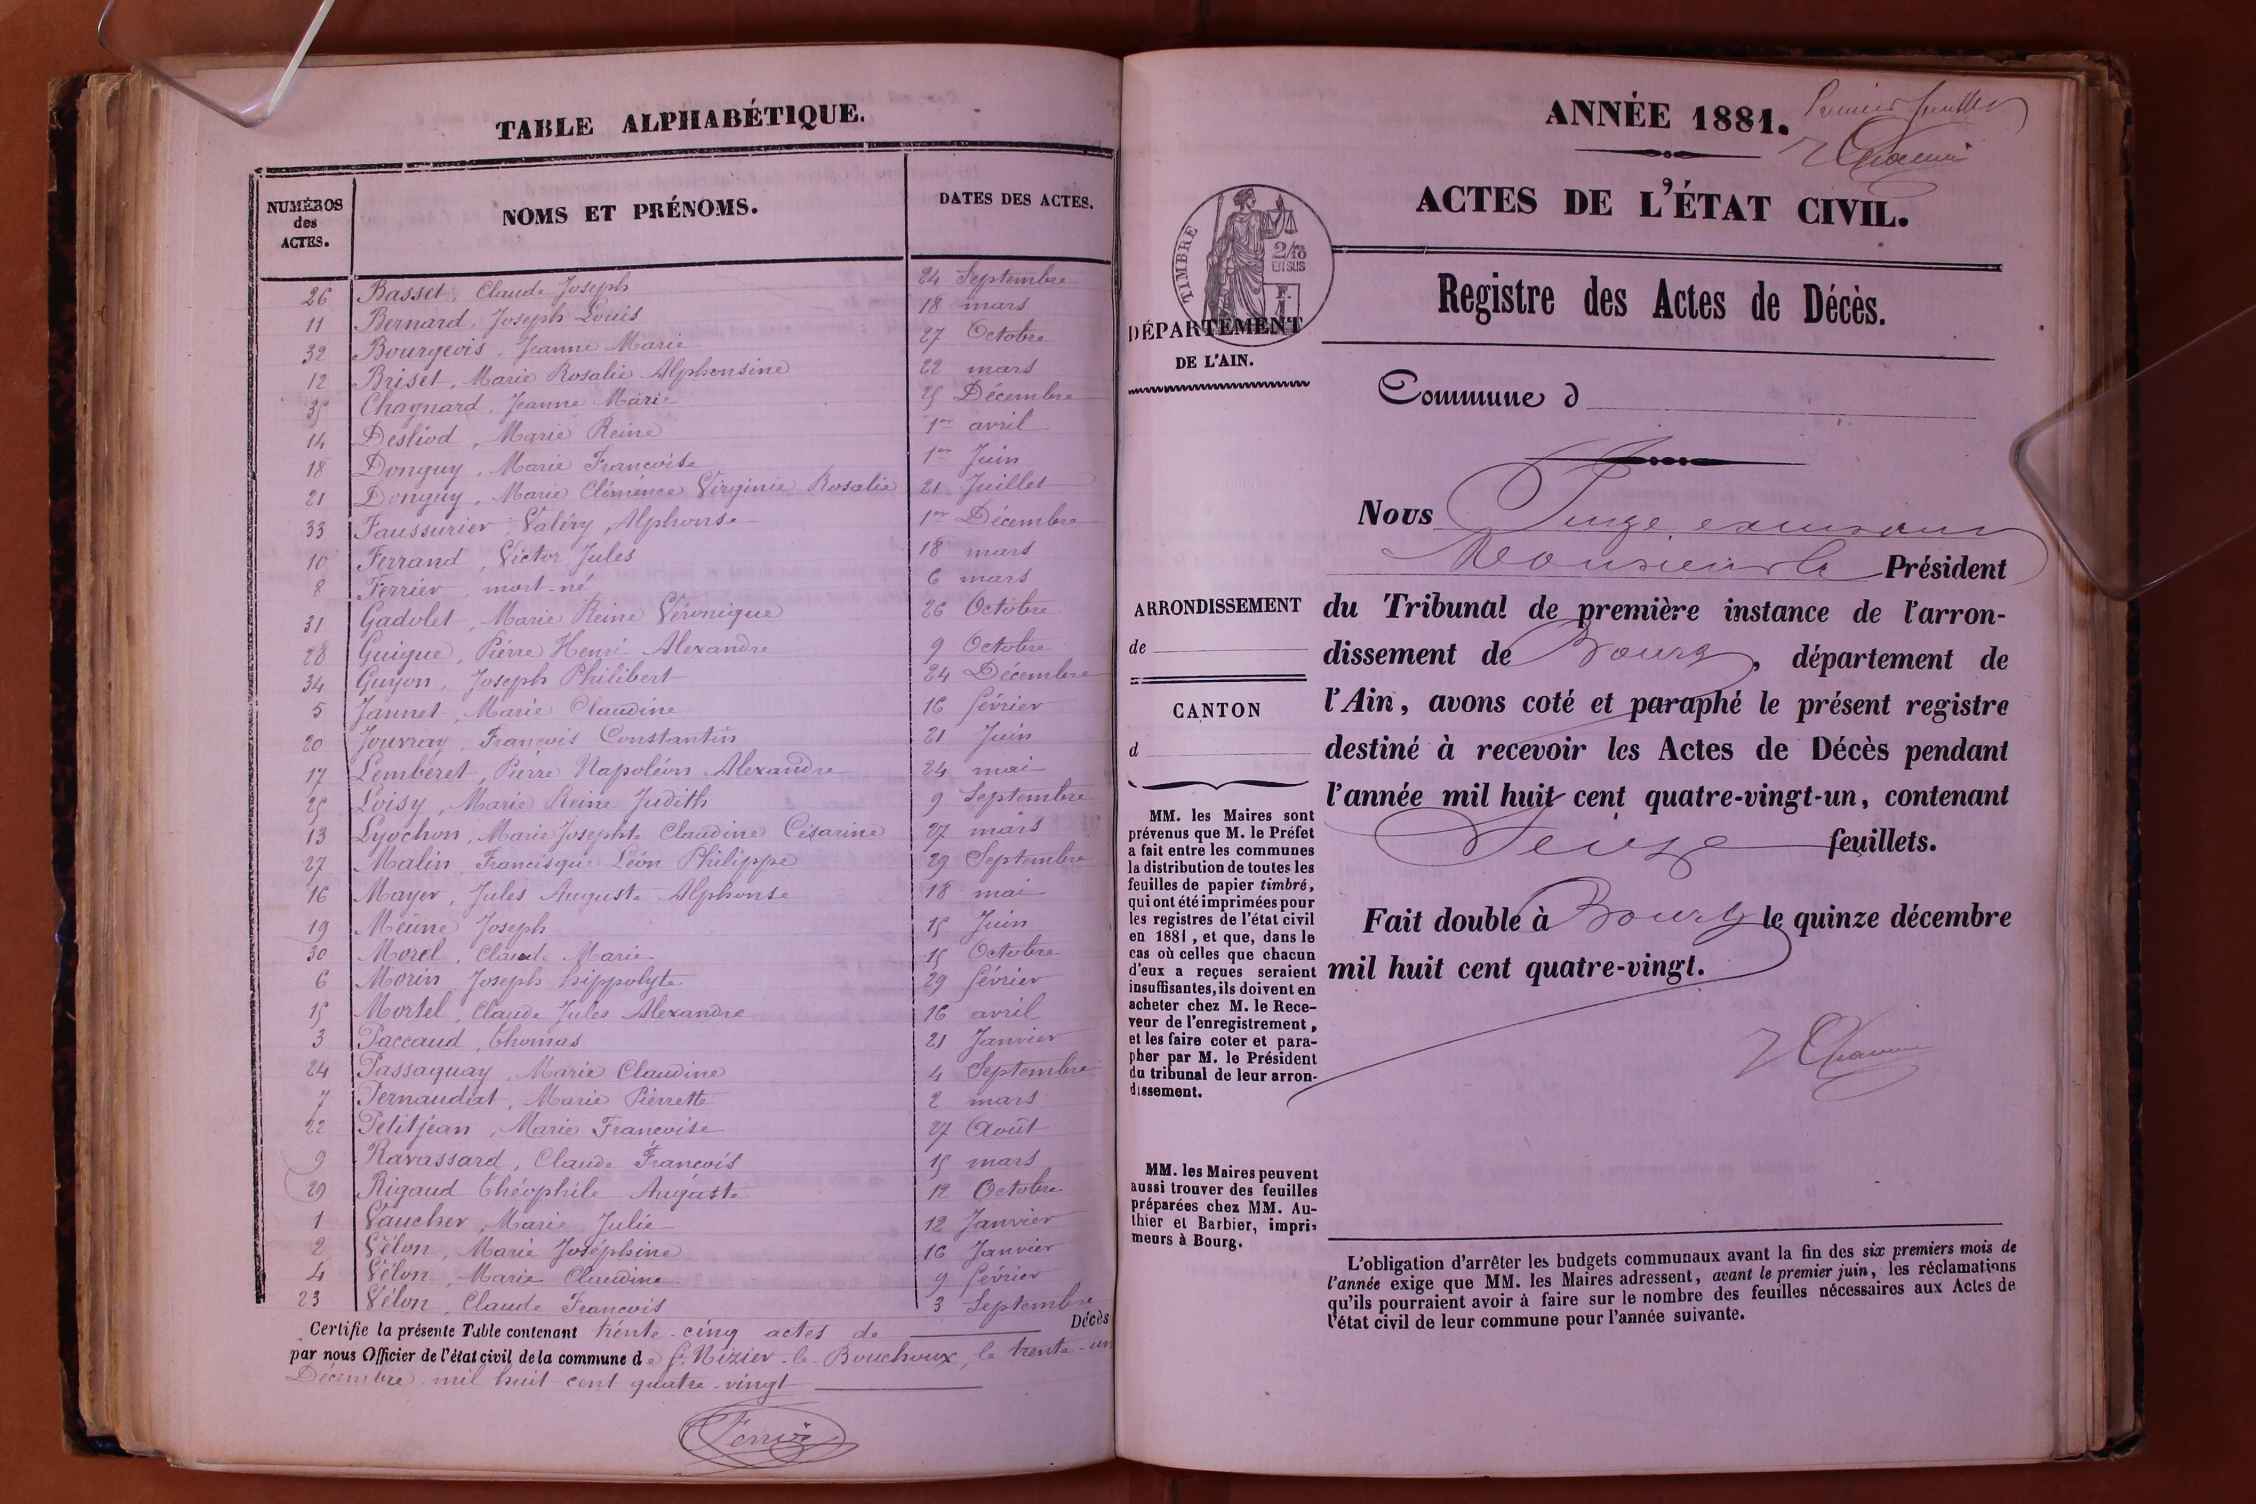 TABLE ALPHABÉTIQUE.
NUMÉROS des ACTES. NOMS ET PRÉNOMS. DATES DES ACTES.
26 Basset, Claude Joseph 24 Septembre
11 Bernard, Joseph Louis 18 mars
32 Bourgeois, Jeanne Marie 27 Octobre
12 Briset, Marie Rosalie Alphonsine 22 mars
35 Chagnard, Jeanne Marie 25 Décembre
14 Desliod, Marie Reine 1er avril
18 Donguy, Marie Françoise 1er Juin
21 Donguy, Marie Clémence Virginie Rosalie 21 Juillet
33 Faussurier Valéry Alphonse 1er Décembre
10 Ferrand, Victor Jules 18 mars
8 Ferrier, mort-né 6 mars
31 Gadolet, Marie Reine Véronique 26 Octobre
28 Guigue, Pierre Henri Alexandre 9 Octobre
34 Guyon, Joseph Philibert 24 Décembre
5 Jannet, Marie Claudine 16 février
20 Jouvray, François Constantin 21 Juin
17 Lemberet, Pierre Napoléon Alexandre 24 mai
25 Loisy, Marie Reine Judith 9 Septembre
13 Lyochon, Marie Josephte Claudine Césarine 27 mars
27 Malin Francisque Léon Philippe 29 Septembre
16 Mayer, Jules Auguste Alphonse 18 mai
19 Meune Joseph 15 Juin
30 Morel, Claude Marie 15 Octobre
6 Morin Joseph hippolyte 29 février
15 Mortel, Claude Jules Alexandre 16 avril
3 Paccaud, Thomas 21 Janvier
24 Passaquay, Marie Claudine 4 Septembre
7 Pernaudat, Marie Pierrette 2 mars
22 Petitjean, Marie Françoise 27 Août
9 Ravassard, Claude François 15 mars
29 Rigaud Théophile Auguste 12 Octobre
1 Vaucher, Marie Julie 12 Janvier
2 Vélon, Marie Joséphine 16 Janvier
4 Vélon, Marie Claudine 9 février
23 Vélon, Claude François 3 Septembre
Certifie la présente Table contenant trente-cinq actes de Décès
par nous Officier de l'état civil de la commune de St Nizier-le-Bouchoux, le trente-un
Décembre mil huit cent quatre-vingt
ANNÉE 1881.
Premier feuillet
ACTES DE L'ÉTAT CIVIL.
TIMBRE
2/10
EN SUS
Registre des Actes de Décès.
DÉPARTEMENT
DE L'AIN.
Commune d
Nous Juge exerçant
Monsieur le Président
ARRONDISSEMENT
de
CANTON
d
du Tribunal de première instance de l'arron-
dissement de Bourg, département de
l'Ain, avons coté et paraphé le présent registre
destiné à recevoir les Actes de Décès pendant
l'année mil huit cent quatre-vingt-un, contenant
Seize feuillets.
Fait double à Bourg le quinze décembre
mil huit cent quatre-vingt.
MM. les Maires sont
prévenus que M. le Préfet
a fait entre les communes
la distribution de toutes les
feuilles de papier timbré,
qui ont été imprimées pour
les registres de l'état civil
en 1881, et que, dans le
cas où celles que chacun
d'eux a reçues seraient
insuffisantes, ils doivent en
acheter chez M. le Rece-
veur de l'enregistrement,
et les faire coter et para-
pher par M. le Président
du tribunal de leur arron-
dissement.
MM. les Maires peuvent
aussi trouver des feuilles
préparées chez MM. Au-
thier et Barbier, impri-
meurs à Bourg.
L'obligation d'arrêter les budgets communaux avant la fin des six premiers mois de
l'année exige que MM. les Maires adressent, avant le premier juin, les réclamations
qu'ils pourraient avoir à faire sur le nombre des feuilles nécessaires aux Actes de
l'état civil de leur commune pour l'année suivante.